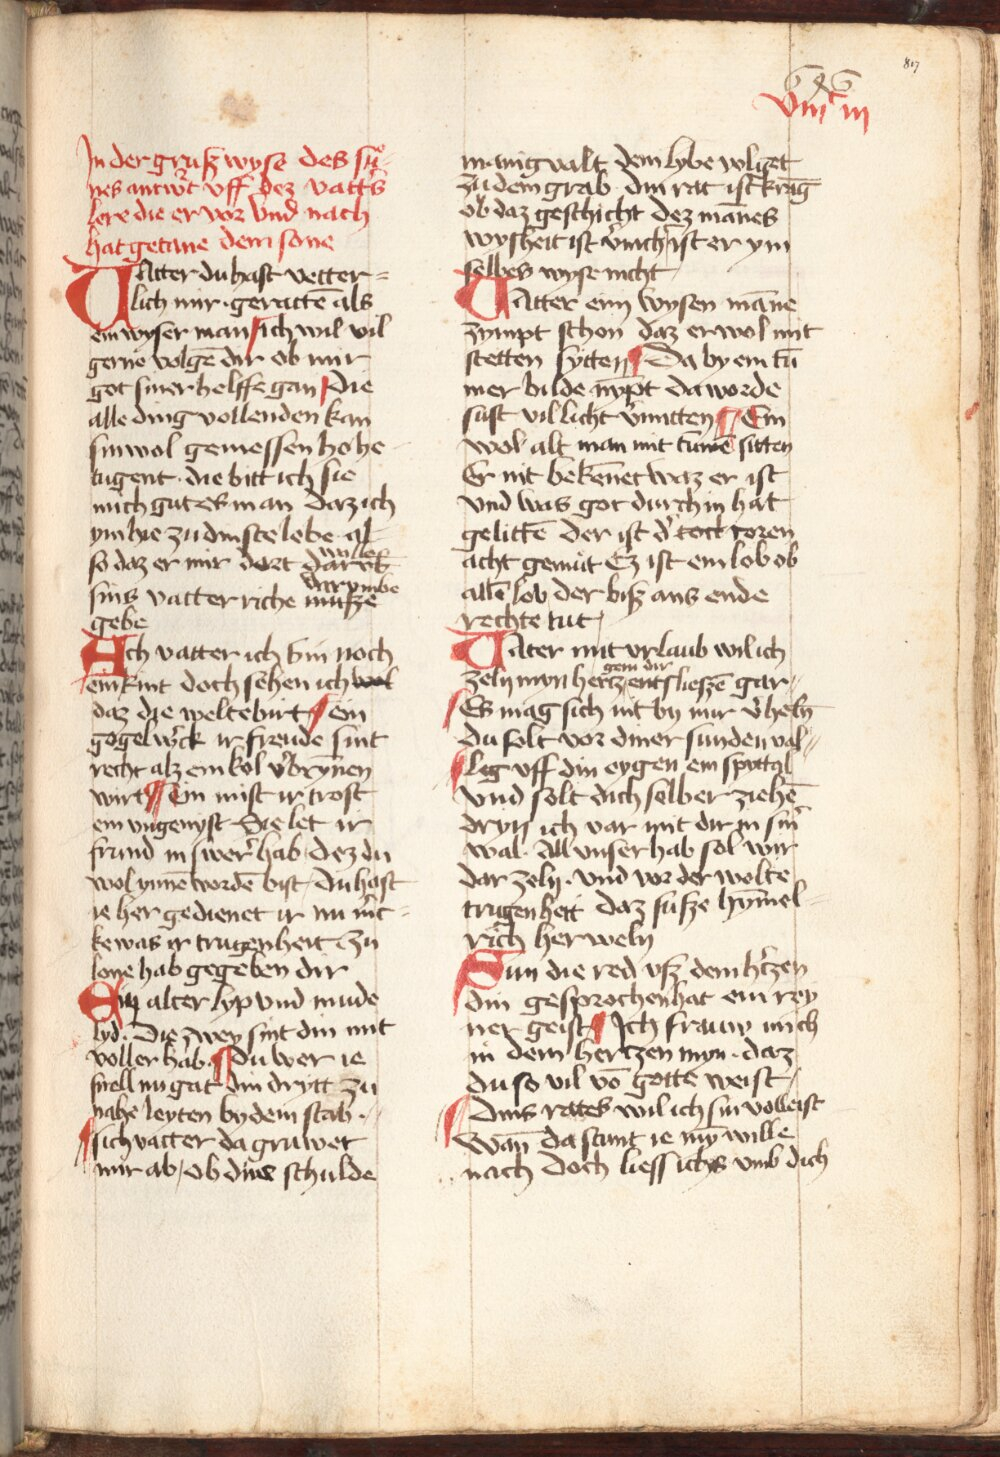 807
viii^c iii
In der gruß wyse des sü-
nes antw't vff dez vatt's
lere die er vor vnd nach
hat getane dem sone
VAtter du hast vetter=
lich mir geratte als
ein wyser man sich wil vil
gerne volgē dir ob mir
got siner helffe gan Die
alle ding vollenden kan
sin wol gemessen hohe
tugent die bitt ich sie
mich gutes man daz ich
ym hie zu dinste lebe al-
so daz er mir dort wille
darymbe
sins vatter riche
gebe
Ach vatter ich bin noch
ein kint doch sehen ich wol
daz die welte birt Ein
gogelw'ck ir freude sint
recht alz ein kol v'brynnen
wirt Ein mist ir trost
ein vngenyst Sie let ir
frund in swer' hab dez du
wol ynnē wordē bist du hast
ie her gedienet ir nu m'c=
ke was ir trugenheit zu
lone hab gegeben dir
Ein alter lyp vnd mude
lyd Die zwey sint din mit
voller hab Du wer ie
snell nu gat din drytt zu
nahe leyten by dem stab
sich vatter da gruwet
mir ab ob dine schulde
manigvalt dem lybe volget
zu dem grab din rat ist krāg
ob daz geschicht dez mānes
wysheit ist v'nicht ist er ym
selbes wyse nicht
VAtter eim wysen māne
zympt schon daz er wol mit
stetten sytten Da by ein tū
mer bilde nympt da worde
sust vil licht v'mitten Ein
wol alt man mit tumē sitten
Er nit bekēnet waz er ist
vnd was got durch in hat
gelittē der ist d' toren
acht gemüt Ez ist ein lob ob
allē lob der biß ans ende
rechte tut
VAter mit vrlaub wil ich
gein dir
zeln myn hertz entsließē gar
Es mag sich nit by mir v'heln
du solt vor diner sunden val=
lig vff din eygen ein spyttal
vnd solt dich selber ziehē
dryn ich var mit dir in sin'
wal All vnser hab sol wir
dar zeln vnd vor der wolte
trugenheit daz suße hymel-
rich her weln
Sun die red vß dem h'tzen
din gesprochen hat ein rey
ner geist Ich frauw mich
in dem hertzen myn daz
du so vil vō gotte weist
dins rates wil ich sin volleist
Wan da stunt ie my wille
nach doch liess ichs vmb dich